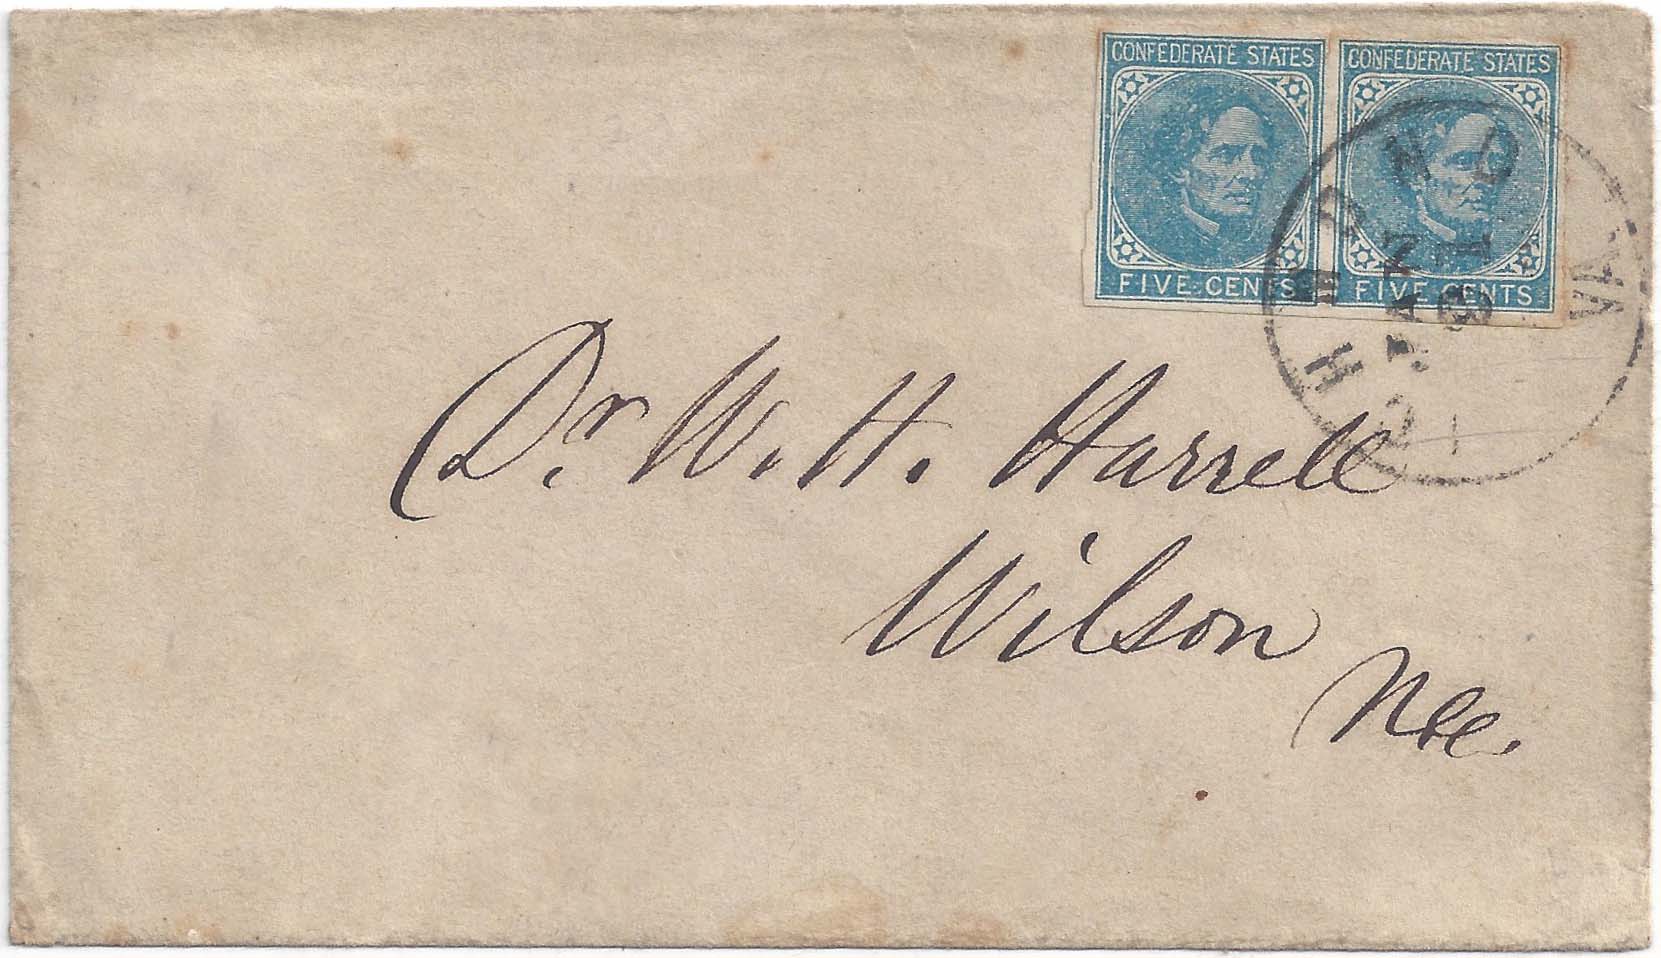 CONFEDERATE STATES
FIVE CENTS
CONFEDERATE STATES
FIVE CENTS
VA
JAN
Dr. W. H. Harrell
Wilson